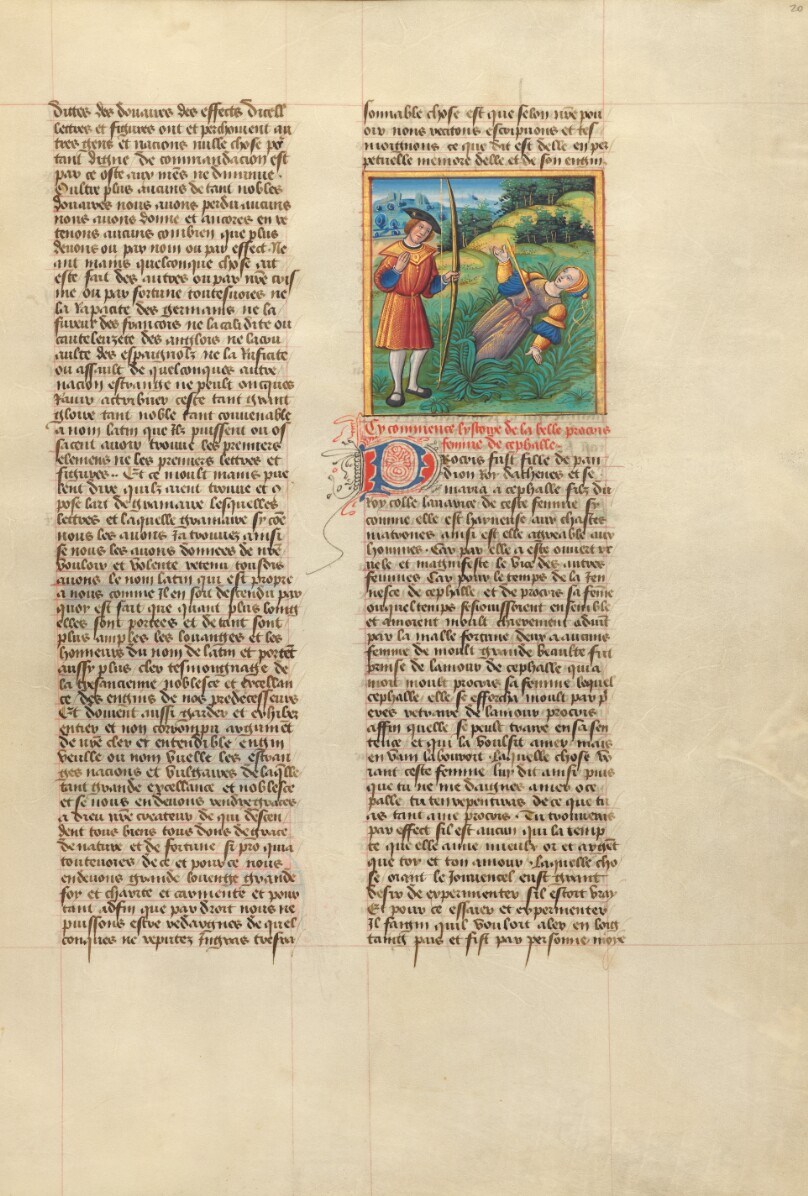 20
dittes des douaires des effects dicell
lectres et figures ont et perchoiuent au
tres gens et nacions nulle chose po
tant digne de commandacion est
par ce oste aux mes ne diminue.
Oultre plus aucuns de tant nobles
douaires nous auons perdu aucuns
nous auons donne et ancores en re
tenons aucuns combien que plus
deuons ou par nom ou par effect. Ne
ani mains quelconque chose ait
este fait des autres ou par nre cris
me ou par fortune toutesuoies ne
la rapacite des germains ne la
fureur des francois ne la calidite ou
cauteleuzete des anglois ne la
aulte des espagnolz ne la rusticite
ou assault de quelconques aultre
nacion estrange ne peult oncques
rauir actribuer ceste tant grant
gloire tant noble tant couuenable
a nom latin que ilz puissent ou os
sacent auoir trouue les premiers
elemens ne les premiers lectres et
figures. Et ce moult mains pue
lent dire quilz aient trouue et
pose lart de gramaire lesquelles
lectres et laquelle gramaire sy coe
nous les auons ia trouuez ainsi
se nous les auons donnees de nre
vouloir et volente retenu tousdis
auons le nom latin qui est propre
a nous comme il en soit descendu par
quoy est fait que quant plus loing
elles sont portees et de tant sont
plus amples les louanges et les
honneurs du nom de latin et portent
aussy plus cler tesmoingnage de
la tresancienne noblesce et excellan
ce des engins de nos predecesseurs
Et doiuent aussi garder et exhiber
entier et non corompu argumet
de nre cler et entendible engin
veulle ou nom vuelle les estran
ges nacions et vulgaires de laqlle
tant grande excellance et noblesce
et se nous en deuons rendre graces
a dieu nre createur de qui descen
dent tous biens tous dons de grace
de nature et de fortune si pro quia
toutenoies de ce et pource nous
endeuons grande louenge grande
foy et charite et carmente et pour
tant adfin que par droit nous ne
puissons estre redarguez de quel
conques ne reputez ingras tresra
sonnable chose est que selon nre pou
oir nous recitons escripuons et tes
moignons ce que dit est delle en per
petuelle memore delle et de son engin.
Cy commence lystoyre de la belle procris
femme de cephalle.
Procris fust fille de pan
dion roy dathenes et se
maria a cephalle filz du
roy colle lauarice de ceste femme sy
comme elle est hayneuse aux chastes
matrones ainsi est elle agreable aux
hommes. Car par elle a este ouuert re
uele et magnifeste le vice des autres
femmes Car pour le temps de la Jen
nesce de cephalle et de procris sa feme
ouquel temps sesioissoient ensemble
et amoient moult chierement aduint
par la malle fortune deux a aucuns
femme de moult grande beaulte fut
prinse de lamour de cephalle qui a
moit moult procris sa femme lequel
cephalle elle se efforcha moult par pri
eres retraire de lamour procris
affin quelle se peult traire en sa sen
tence et qui la voulsist amer mais
en vain labouroit. Laquelle chose ve
rant ceste femme luy dit ainsi puis
que tu ne me daignes amer o ce
phalle tu ten repentiras de ce que tu
as tant ame procris. Tu trouueras
par effect sil est aucun qui la temp
te que elle aime mieulx or et argent
que toy et ton amour. Laquelle cho
se oiant le Jouuencel eust grant
desir de experimenter sil estoit vray
Et pour ce essaier et experimenter
Il faigni quil vouloit aler en loig
taines pais et fist par personne